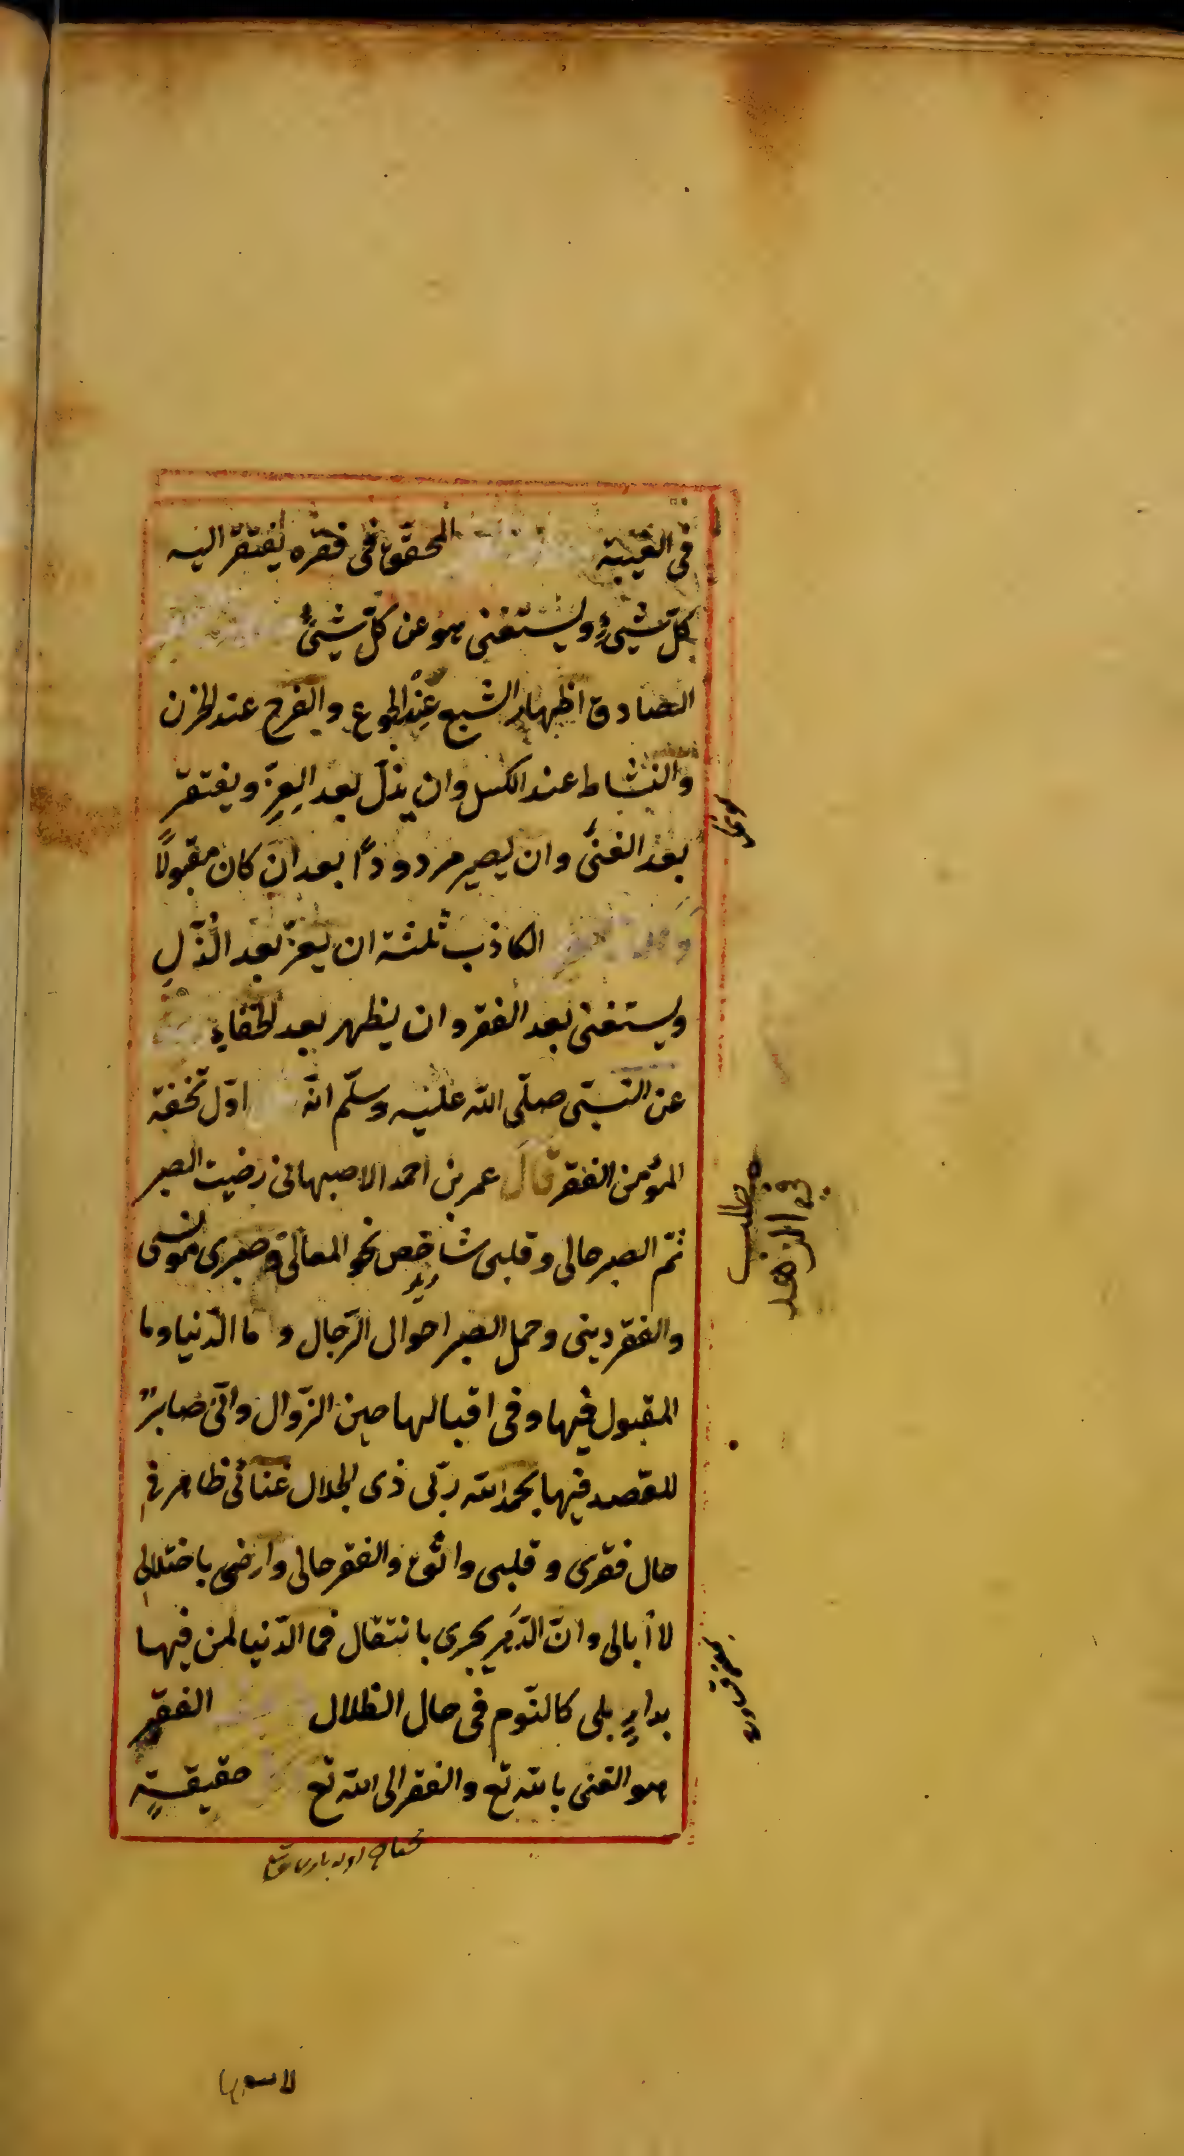 في الغيبة المحقق في فقره يفتقر اليه
كلّ شيءٍ ويستغني هو عن كلّ شيءٍ
الصادق اظهار الشبع عند الجوع والفرح عند الحزن
والنشاط عند الكسل وان يذلّ بعد العِزّ ويفتقر
بعد الغنى وان يصير مردودًا بعد ان كان مقبولًا
الكاذب ثلثة ان يعزّ بعد الذّلِ
ويستغني بعد الفقر وان يظهر بعد الخفاءِ
عن النبيّ صلّى الله عليه وسلّم انّه اوّل تحفة
المؤمن الفقر قال عمر بن احمد الاصبهاني رضيت الصبر
ثمّ الصبر حالي وقلبي شاخص نحو المعالي وصبري مونسي
والفقر ديني وحمل الصبر احوال الرّجال وما الدّنيا وما
المقبول فيها وفي اقبالها حين الزّوال وانّي صابرٌ
للقصد فيها بحمد الله ربّي ذي الجلال غنائي ظاهر في
حال فقري وقلبي واثق والفقر حالي وارضى باختلالي
لا أبالي وانّ الدّهر يجري بانتقال فما الدّنيا لمن فيها
بدارٍ بلى كالنّوم في حال الظلال الفقر
هو الغنى بالله تع والفقر الى الله تع حقيقةٍ
مطلب
في الزهد